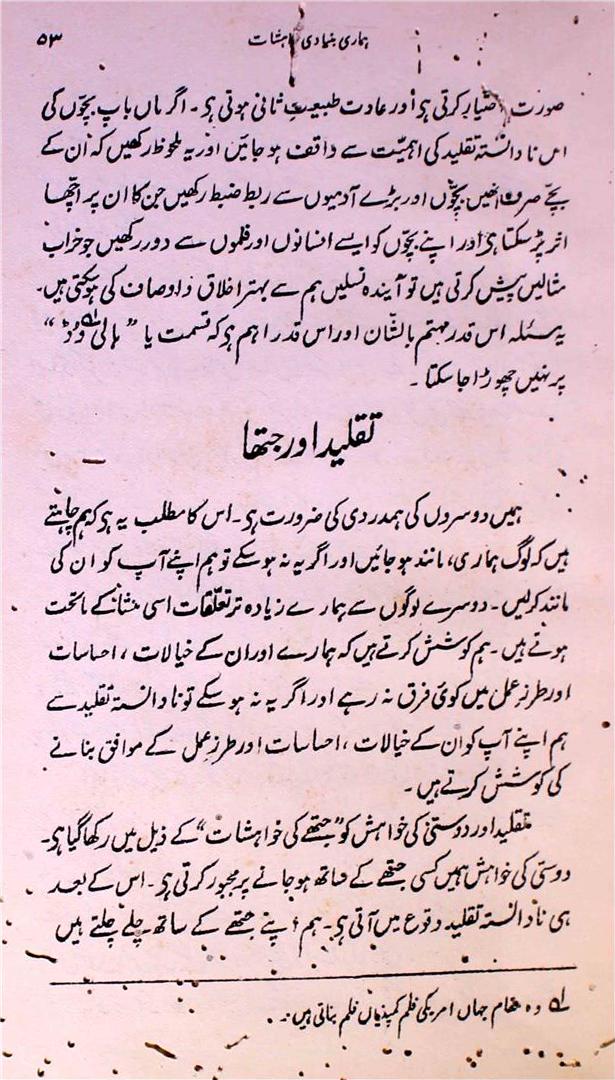 ہماری بنیادی خواہشات ۵۳
صورت اختیار کرتی ہی اور عادت طبیعت ثانی ہوتی ہی ۔ اگر ماں باپ بچّوں کی
اس نادانستہ تقلید کی اہمیّت سے واقف ہو جائیں اور یہ ملحوظ رکھیں کہ اُن کے
بچّے صرف انھیں بچّوں اور بڑے آدمیوں سے ربط ضبط رکھیں جن کا ان پر اچھا
اثر پڑ سکتا ہی اور اپنے بچّوں کو ایسے افسانوں اور فلموں سے دور رکھیں جو خراب
مثالیں پیش کرتی ہیں تو آیندہ نسلیں ہم سے بہتر اخلاق و اوصاف کی ہو سکتی ہیں۔
یہ مسئلہ اس قدر مہتم بالشّان اور اس قدر اہم ہی کہ قسمت یا ”ہالی وڈ“ لہ
پر نہیں چھوڑا جا سکتا ۔
تقلید اور جتھا
ہمیں دوسروں کی ہمدردی کی ضرورت ہی۔ اس کا مطلب یہ ہی کہ ہم چاہتے
ہیں کہ لوگ ہماری، مانند ہو جائیں اور اگر یہ نہ ہو سکے تو ہم اپنے آپ کو ان کی
مانند کر لیں۔ دوسرے لوگوں سے ہمارے زیادہ تر تعلّقات اسی منشا کے ماتحت
ہوتے ہیں ۔ ہم کوشش کرتے ہیں کہ ہمارے اور ان کے خیالات ، احساسات
اور طرز عمل میں کوئی فرق نہ رہے اور اگر یہ نہ ہو سکے تو نادانستہ تقلید سے
ہم اپنے آپ کو ان کے خیالات ، احساسات اور طرز عمل کے موافق بنانے
کی کوشش کرتے ہیں ۔
تقلید اور دوستی کی خواہش کو ”جتھے کی خواہشات“ کے ذیل میں رکھا گیا ہی۔
دوستی کی خواہش ہمیں کسی جتھے کے ساتھ ہو جانے پر مجبور کرتی ہی۔ اس کے بعد
ہی نادانستہ تقلید وقوع میں آتی ہی۔ ہم اپنے جتھے کے ساتھ چلے چلتے ہیں
لہ وہ مقام جہاں امریکی فلم کمپنیاں فلم بناتی ہیں ۔